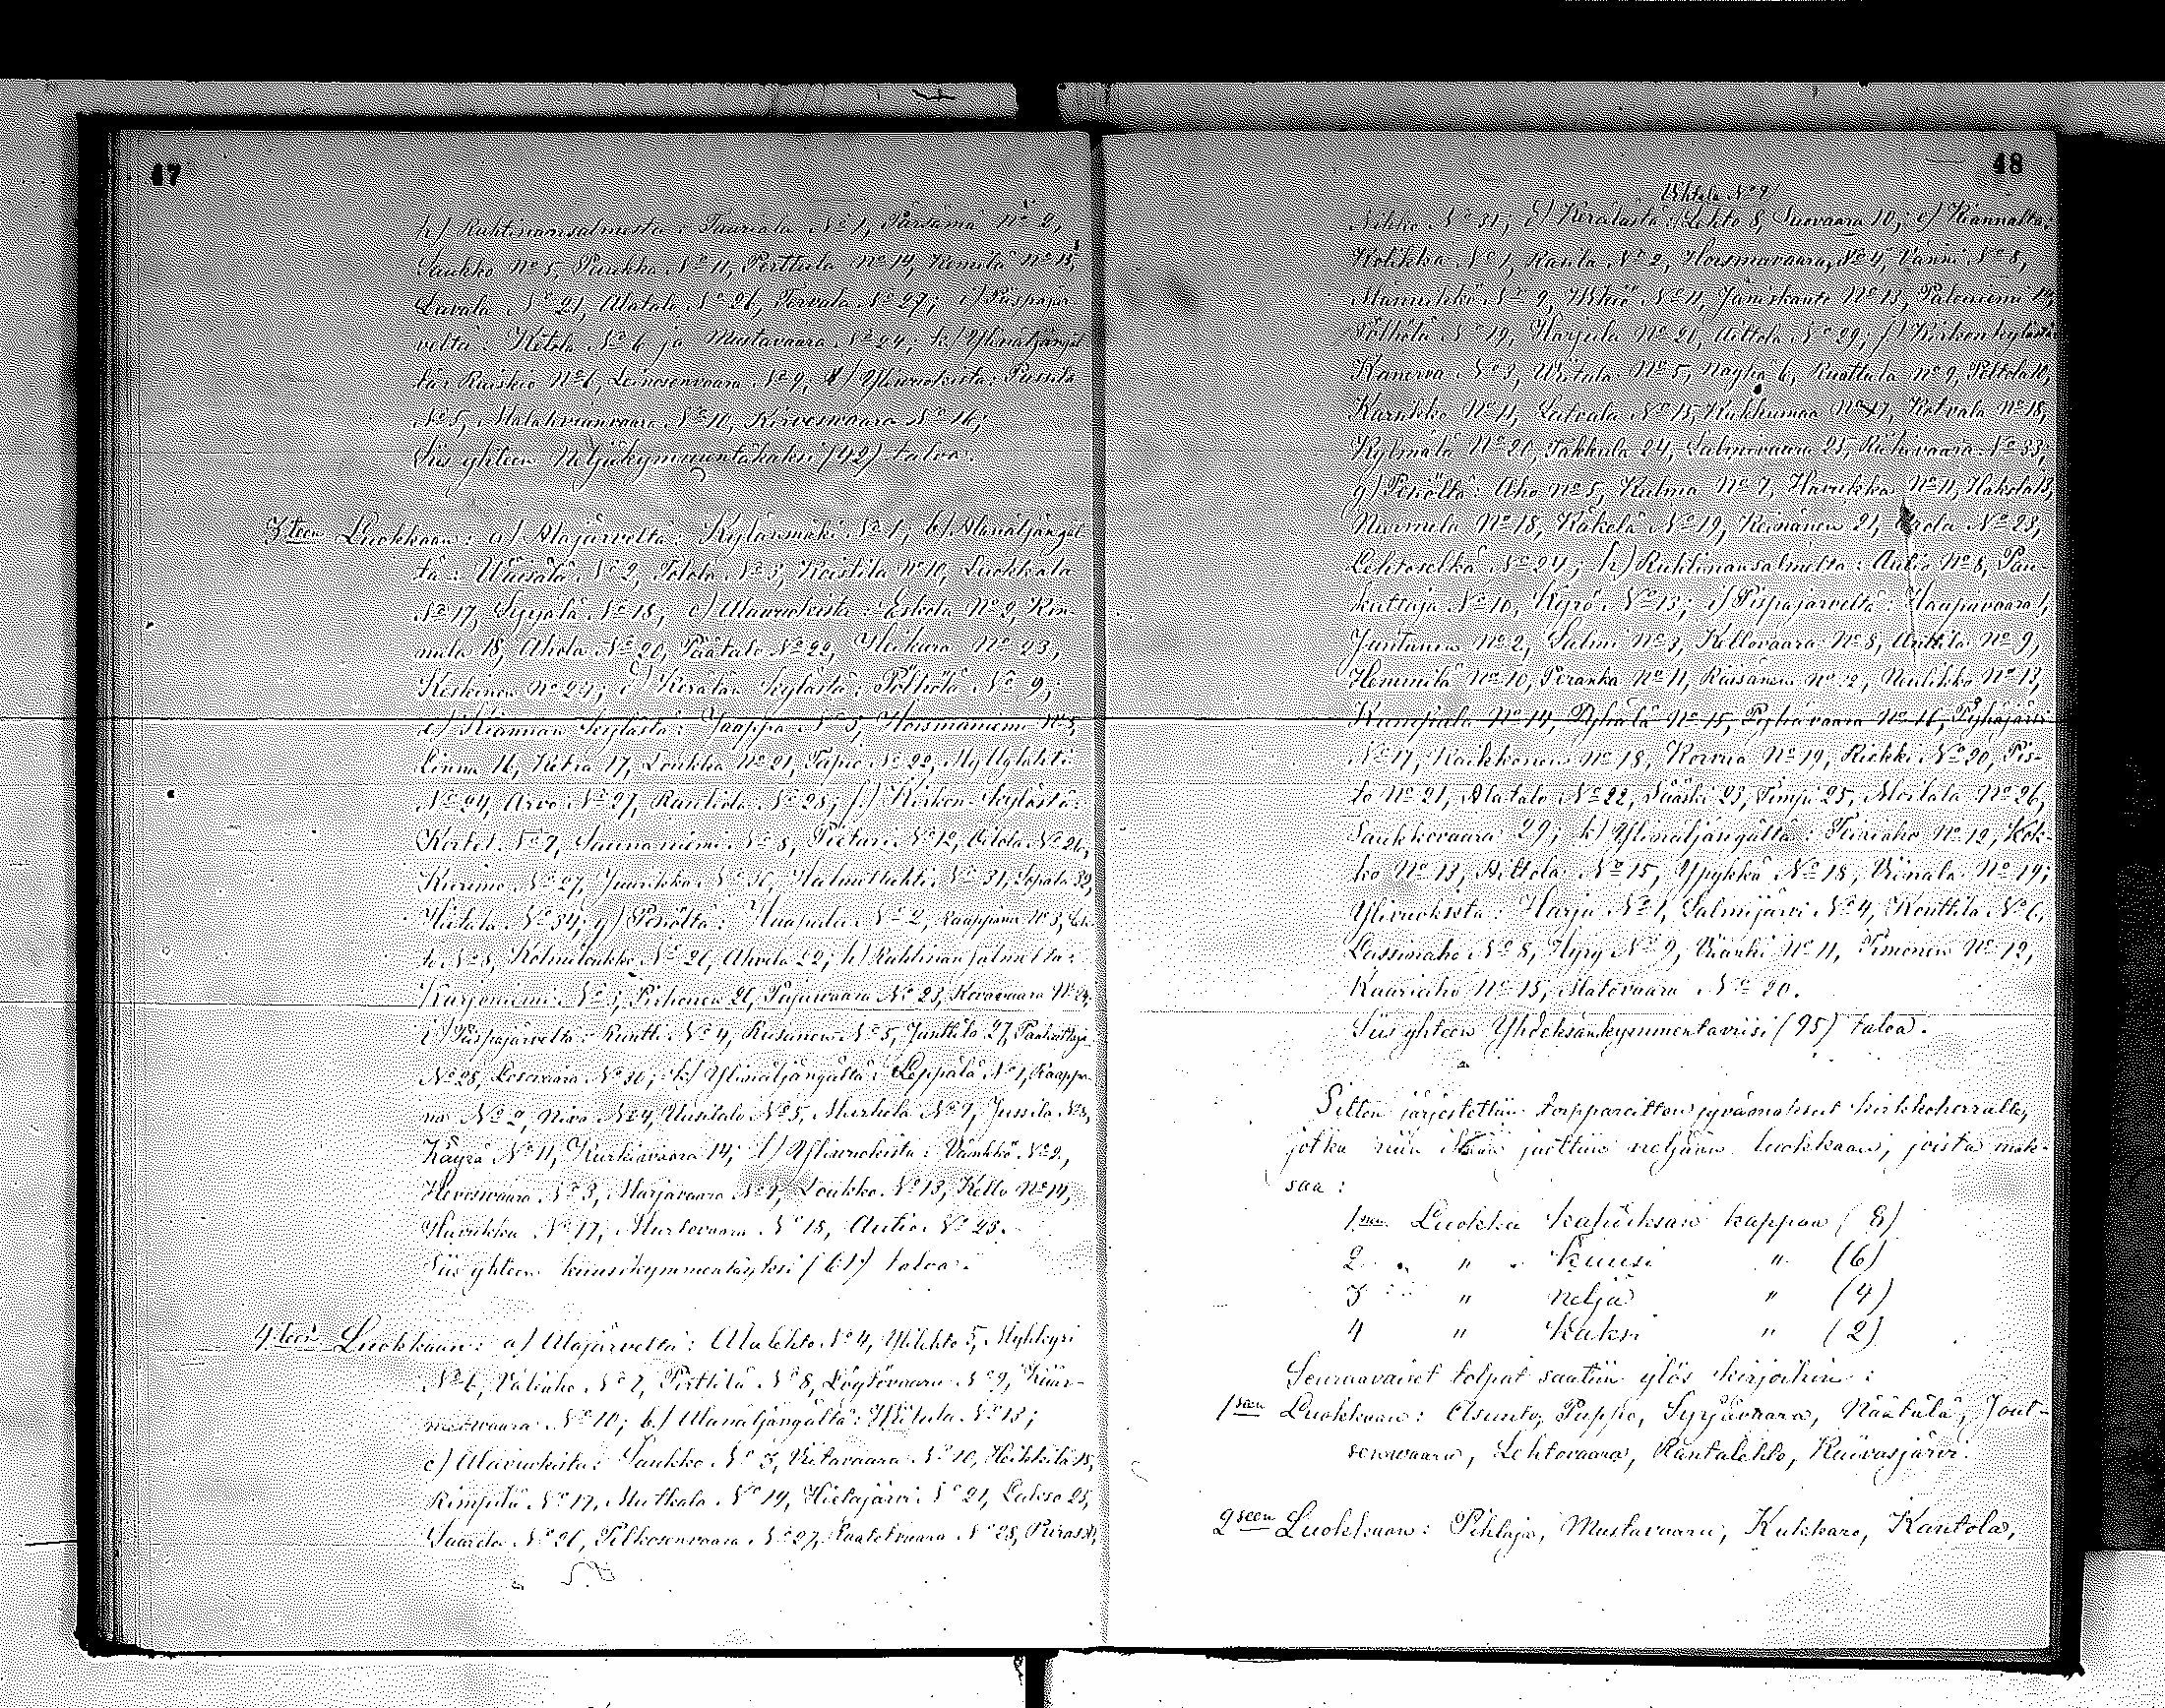 47
h) Ruhtinaansalmesta: Tauriala No 1, Pärsämä No 2,
Saukko No 5, Puukka No 11, Perttula No 14, Kemilä No 15,
Lavala No 21, Alatalo No 26, Tervala No 27; i) Piispajär-
veltä: Hetola No 6 ja Mustavaara No 24; k) Ylinäljängäl-
tä: Ruiskio No 6, Leinosenvaara No 9, l) Ylivuokista: Pussila
No 5, Malahvianvaara No 10, Kirveswaara No 16;
Siis yhteen Neljäkymmentäkaksi (42) taloa.
3teen Luokkaan: a) Alajärveltä: Kylänmäki No 1; b) Alanäljängäl-
tä: Väisälä No 2, Tolola No 3, Koistila No 10, Luokkala
No 17, Syrjälä No 18; c) Alawuokista: Eskola No 2, Rin-
nula 18, Ahola No 20, Päätalo No 22, Heikura No 23,
Keskinen No 24; d) Kerälän kylästä: Pölhölä No 9;
e) Kiannan kylästä: Jaappa No 3, Hoismaniemi No 5,
Linna 16, Kehra 17, Loukka No 21, Tapio No 22, Myllylahti
No 24, Arvo No 27, Rantiola No 28; f) Kirkon kylästä:
Kortet No 7, Saunaniemi No 8, Pietari No 12, Ailola No 26,
Kurimo No 27, Juurikka No 30, Halmetlahti No 31, Sopala 32,
Hietala No 34; g) Pesiöltä: Haapala No 2, Kaappana No 3, Leh-
to No 8, Kolmiloukko No 20, Ahvila 22; h) Ruhtinansalmelta:
Karjoniemi No 3, Pirhonen 20, Pajuwaara No 23, Kovavaara No 24;
i) Piispajärveltä: Kuntti No 4, Kusianen No 5, Junttila 27, Pankuttaja
No 28, Losovaara No 30; k) Ylinäljängältä: Leppälä No 1, Kaappa-
na No 2, Niva No 4, Uusitalo No 5, Murhola No 7, Jussila No 8,
Käyrä No 11, Kurkiavaara 14; l) Ylivuokista: Vänkkö No 2,
Hevoswaara No 3, Marjavaara No 7, Loukko No 13, Kello No 14,
Havukka No 17, Murtovaara No 18, Autio No 23.
Siis yhteen kuusikymmentäyksi (61) taloa.
4teen Luokkaan: a) Alajärveltä: Alalehto No 4, Ylilehto 5, Myhkyri
No 6, Väliaho No 7, Pirttilä No 8, Löytövaara No 9, Käär-
meswaara No 10; b) Alanäljängältä: Hiltula No 13;
c) Alavuokista: Saukko No 3, Viitavaara No 10, Heikkilä 15,
Rimpilä No 17, Mutkala No 19, Hietajärvi No 21, Lakso 25,
Saarela No 26, Pelkosenvaara No 27, Raatetvaara No 28,
48
Uhtela No 7
Nikko No 31; d) Kerälästä: Lehto 8, Suovaara 10; e) Kiannalta:
Kolikka No 1, Karila No 2, Hoismavaara No 4, Vänni No 8,
Männikkö No 9, Yrkiö No 11, Jäniskanto No 13, Paloniemi 14,
Pölhölä No 19, Harjula No 20, Aittola No 29; f) Kirkon kylästä
Kanerva No 3, Virtala No 5, Näykä 6, Ruottula No 9, Peltola 10,
Karukko No 11, Latvala No 15, Kukkumaa No 17, Kotvala No 18,
Kylmälä No 20, Takkula 24, Salmivaara 25, Riihivaara No 33;
g) Pesiöltä: Aho No 5, Kulma No 7, Havukka No 11, Haksla 13,
Nurmela No 18, Käkelä No 19, Keinänen 21, Erola No 23,
Lehtoselkä No 24; h) Ruhtinansalmelta: Autio No 8, Pan-
kuttaja No 10, Kyrö No 13; i) Pispajärveltä: Haapavaara 1,
Juntunen No 2, Salmi No 3, Kellovaara No 8, Anttila No 9,
Hemmilä No 10, Peranka No 11, Räisänen No 12, Neulikko No 13,
Kumpula No 14, Pyhälä No 15, Pyhävaara No 16, Pyhäjärvi
No 17, Kaikkonen No 18, Korvia No 19, Riekki No 20, Pis-
to No 21, Alatalo No 22, Sääski 23, Timpi 25, Moilala No 26,
Saukkovaara 29; k) Ylinäljängältä: Teiriaho No 12, Kok-
ko No 13, Aittola No 15, Ypykkä No 18, Viinala No 19;
Ylivuokista: Harju No 1, Salmijärvi No 4, Konttila No 6,
Lassinaho No 8, Hyry No 9, Vianki No 11, Timonen No 12,
Kaariaho No 15, Matovaara No 20.
Siis yhteen Yhdeksänkymmentäviisi (95) taloa.
Sitten järjestettiin torppareitten jyvämaksut kirkkoherralle,
jotka niin ikään jaettiin neljään luokkaan; joista mak-
saa:
1nen Luokka kahdeksan kappaa (8)
2 " " kuusi " (6)
3 " neljä " (4)
4 " kaksi " (2)
Seuraavaiset tolpat saatiin ylös kirjoihin:
1seen Luokkaan: Asunto, Puppo, Syrjävaara, Näätälä, Jout-
senwaara, Lehtovaara, Rantalehto, Kuivasjärvi.
2seen Luokkaan: Pihlaja, Mustavaara, Kukkaro, Kantola,